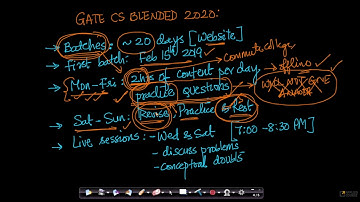 GATE CS BLENDED 2020:
→ Batches: ~20 days [Website]
→ First batch: Feb 15th 2019
commute/college
→ Mon-Fri: 2hrs of content per day
offline
practice questions
→ Sat-Sun: Revise, Practice & Rest
→ Live sessions: - Wed & Sat [7:00-8:30 PM]
- discuss problems
- conceptual doubts